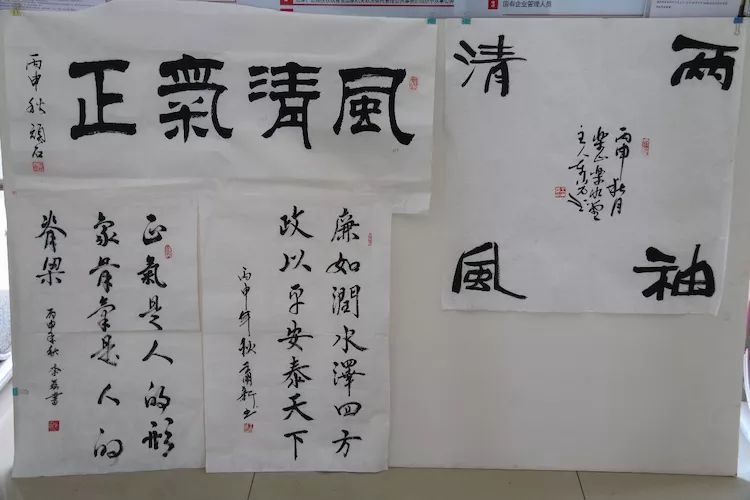 3 国有企业管理人员
風清氣正
丙申秋 頑石
兩袖
清風
丙申秋月
主人
廉如潤水澤四方
政以平安泰天下
丙申年秋
正氣是人的形
象骨氣是人的
脊梁
丙申年秋